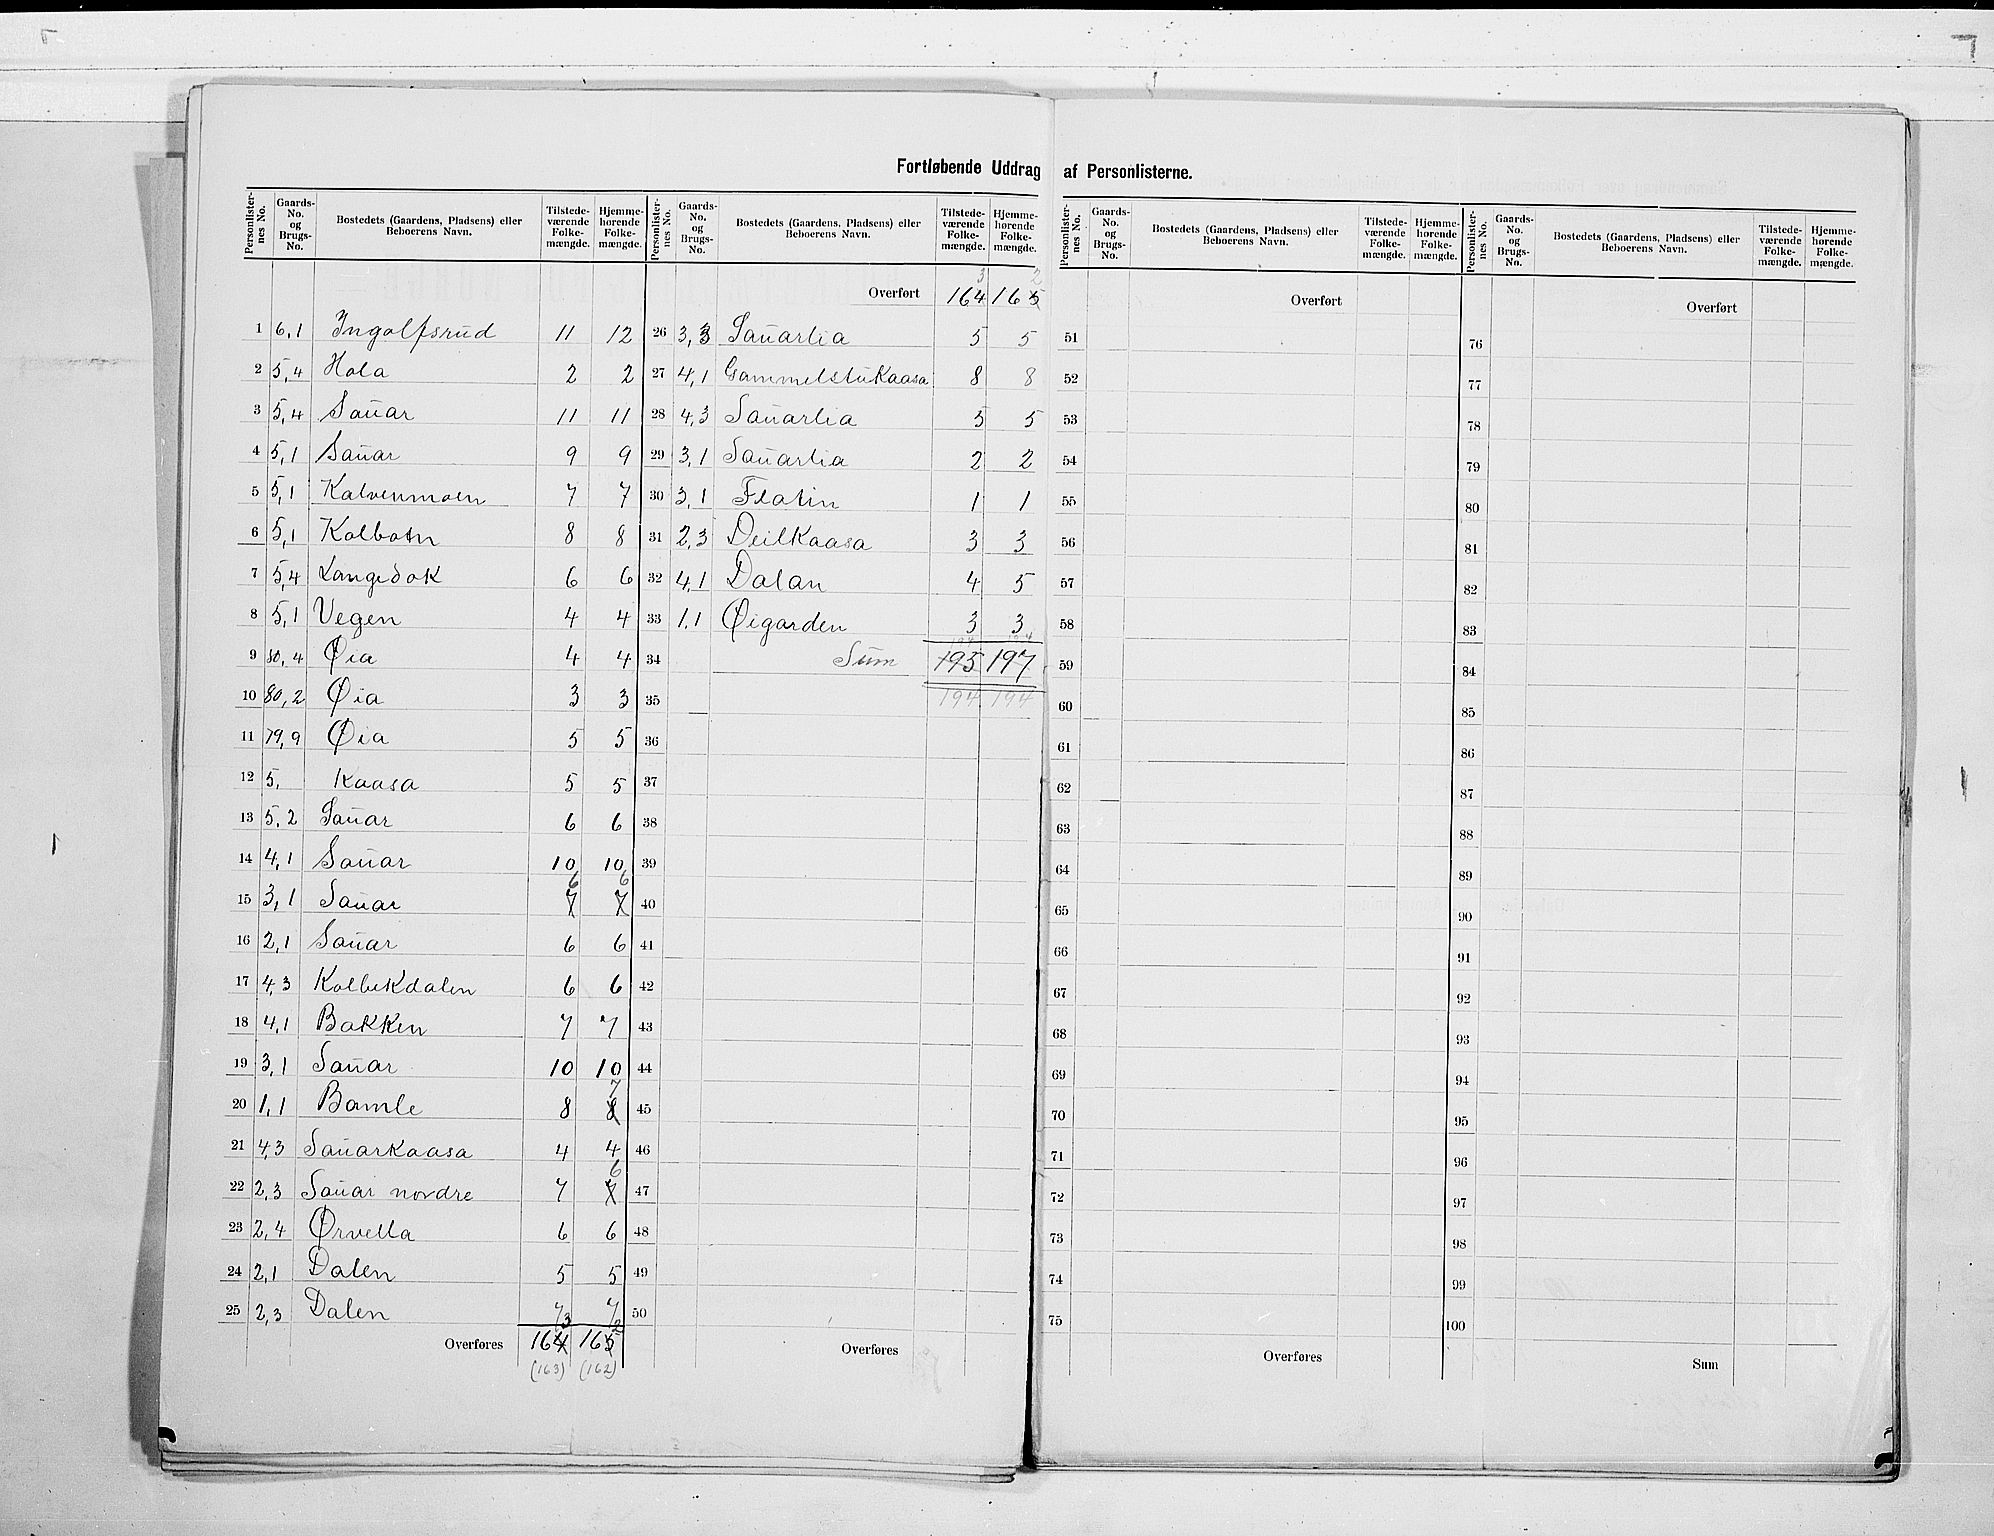 Fortløbende Uddrag af Personlisterne.
Personlister-nes No. Gaards-No. og Brugs-No. Bostedets (Gaardens, Pladsens) eller Beboerens Navn. Tilstede-værende Folke-mængde. Hjemme-hørende Folke-mængde.
1 6,1 Ingolfsrud 11 12
2 5,4 Hola 2 2
3 5,4 Sauar 11 11
4 5,1 Sauar 9 9
5 5,1 Kalvenmoen 7 7
6 5,1 Kolbotn 8 8
7 5,4 Langedok 6 6
8 5,1 Vegen 4 4
9 80,4 Øia 4 4
10 80,2 Øia 3 3
11 79,9 Øia 5 5
12 5, Kaasa 5 5
13 5,2 Sauar 6 6
14 4,1 Sauar 10 10
6 6
15 3,1 Sauar 7 7
16 2,1 Sauar 6 6
17 4,3 Kolbekdalen 6 6
18 4,1 Bakken 7 7
19 3,1 Sauar 10 10
7
20 1,1 Bamle 8 8
21 4,3 Sauarkaasa 4 4
6
22 2,3 Sauar nordre 7 7
23 2,4 Ørvella 6 6
24 2,1 Dalen 5 5
25 2,3 Dalen 7 7
3 2
Overføres 164 165
(163) (162)
Personlister-nes No. Gaards-No. og Brugs-No. Bostedets (Gaardens, Pladsens) eller Beboerens Navn. Tilstede-værende Folke-mængde. Hjemme-hørende Folke-mængde.
3 2
Overført 164 165
26 3,3 Sauarlia 5 5
27 4,1 Gammelstukaasa 8 8
28 4,3 Sauarlia 5 5
29 3,1 Sauarlia 2 2
30 3,1 Flatin 1 1
31 2,3 Deilkaasa 3 3
32 4,1 Dalan 4 5
33 1,1 Øigarden 3 3
194 194
34 Sum 195 197
35 194 194
36
37
38
39
40
41
42
43
44
45
46
47
48
49
50
Overføres
Personlister-nes No. Gaards-No. og Brugs-No. Bostedets (Gaardens, Pladsens) eller Beboerens Navn. Tilstede-værende Folke-mængde. Hjemme-hørende Folke-mængde.
Overført
51
52
53
54
55
56
57
58
59
60
61
62
63
64
65
66
67
68
69
70
71
72
73
74
75
Overføres
Personlister-nes No. Gaards-No. og Brugs-No. Bostedets (Gaardens, Pladsens) eller Beboerens Navn. Tilstede-værende Folke-mængde. Hjemme-hørende Folke-mængde.
Overført
76
77
78
79
80
81
82
83
84
85
86
87
88
89
90
91
92
93
94
95
96
97
98
99
100
Sum